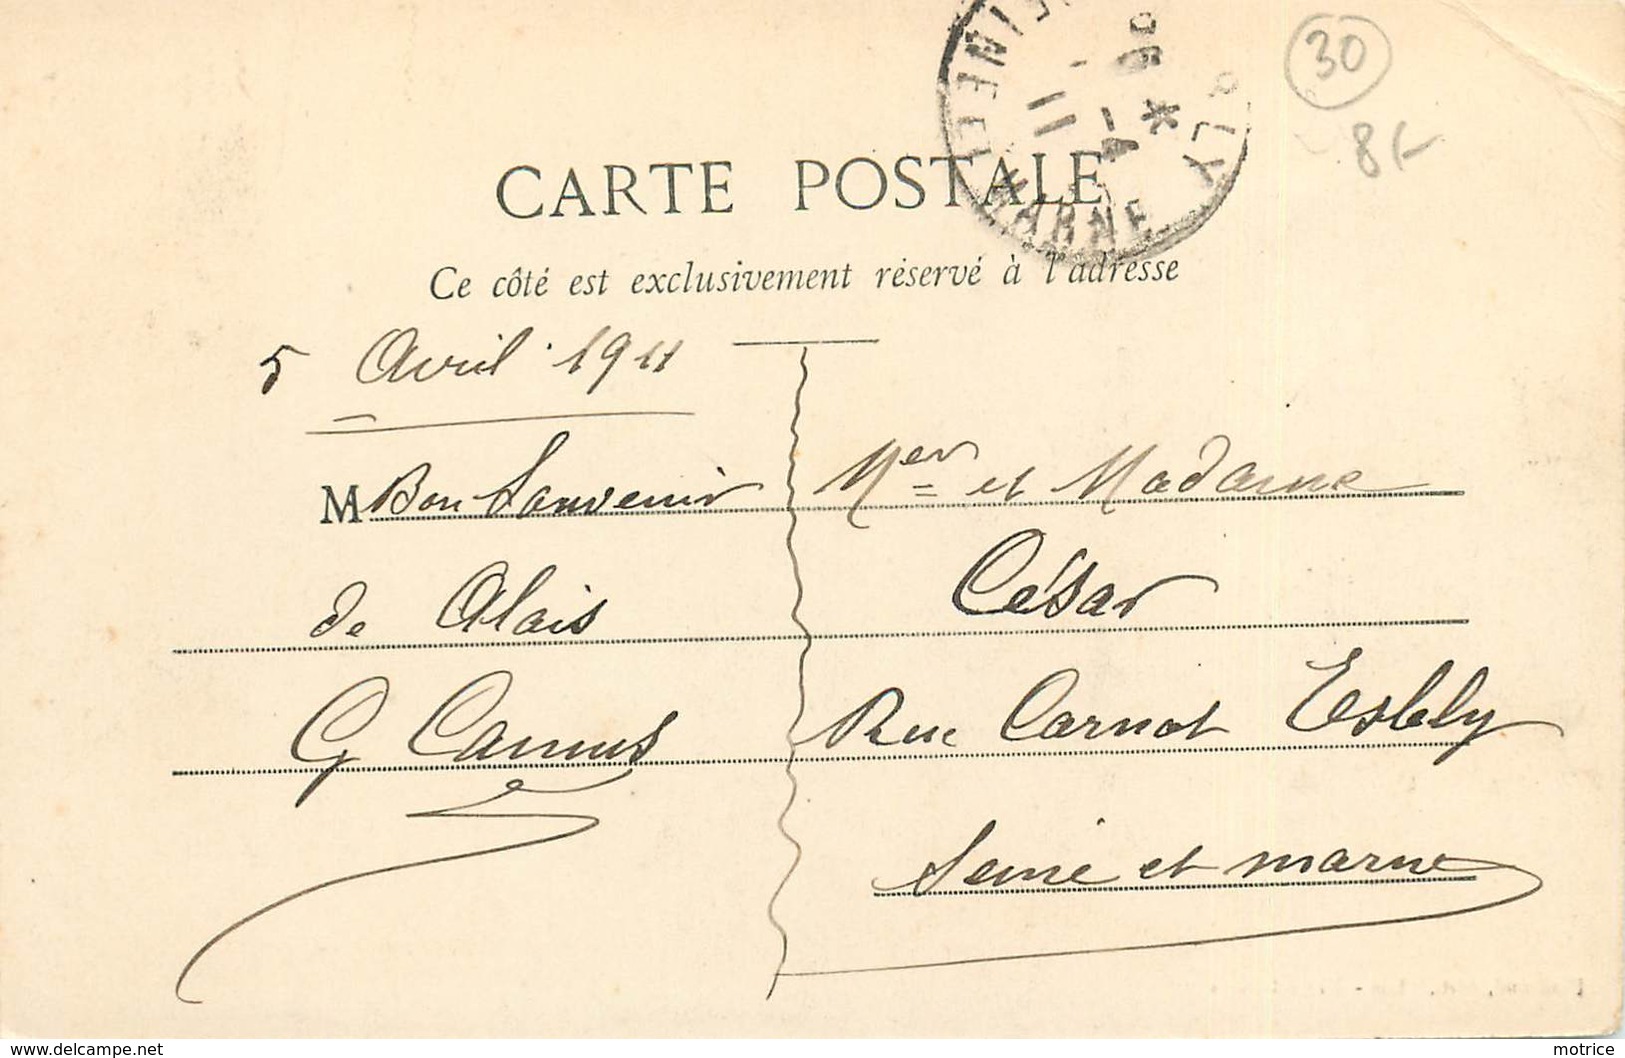 30
8f
CARTE POSTALE
Ce côté est exclusivement réservé à l'adresse
5 Avril 1911
M Bon Souvenir
de Alais
G Camus
Mer et Madame
César
Rue Carnot Esbly
Seine et marne
SEINE ET MARNE
11
www.delcampe.net
motrice